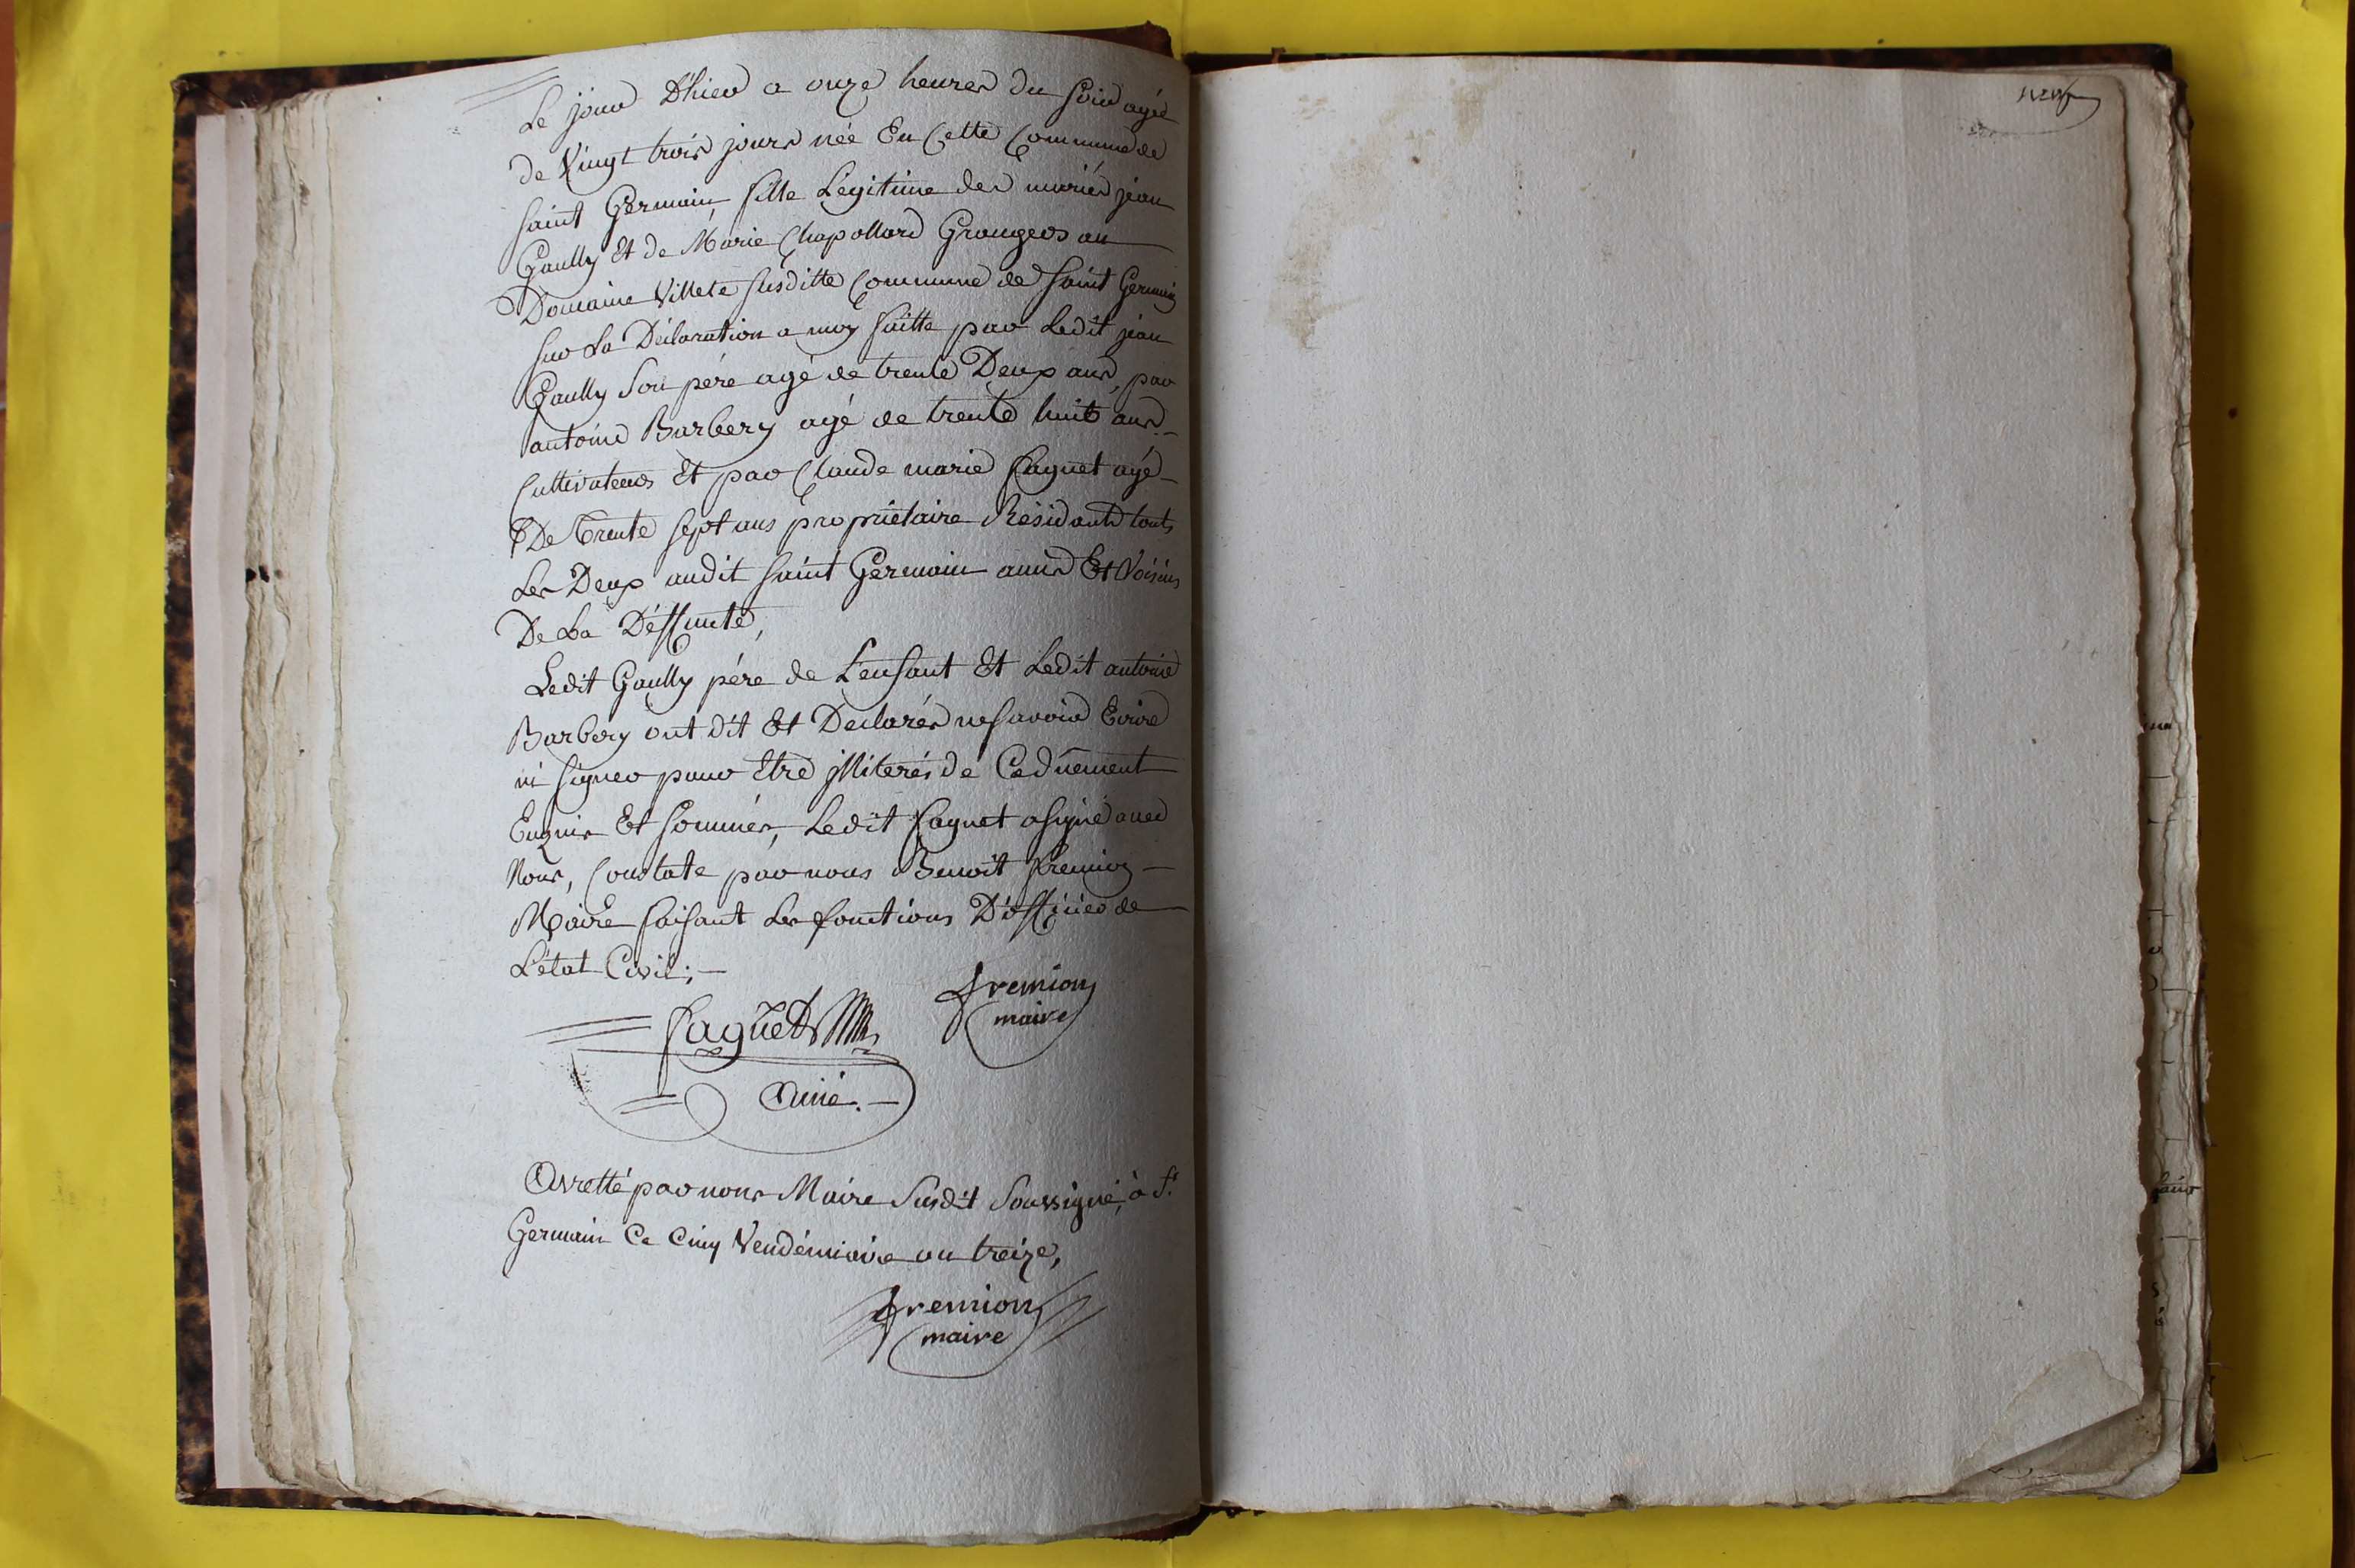 Le jour D'hier a onze heures du soir agée
de Vingt trois jours née En Cette Commune de
saint Germain, fille Légitime des mariés jean
Gaully Et de Marie Chapollard Grangers au
Domaine Villete susditte Commune de saint Germain
sur La Déclaration a moy faitte par Ledit jean
Gaully son père agé de trente Deux ans, par
antoine Barbery agé de trente huit ans
Cultivateurs Et par Claude marie Caquet agé
De Trente sept ans propriétaire Résidants touts
Les Deux audit saint Germain amis Et Voisins
De La Déffunte,
Ledit Gaully père de L'enfant Et Ledit antoine
Barbery ont dit Et Declarés ne savoir Ecrire
ni signer pour Etre jlliterés de Ce dûement
Enquis Et sommés, Ledit Caquet a signé avec
Nous, Constate par nous Benoit fremion
Maire faisant Les fonctions D'officier de
L'état Civil;
Caquet
fremion
maire
Ainé.
Arretté par nous Maire Susdit Soussigné, à St.
Germain Ce Cinq Vendémiaire an treize,
fremion
maire
neuf